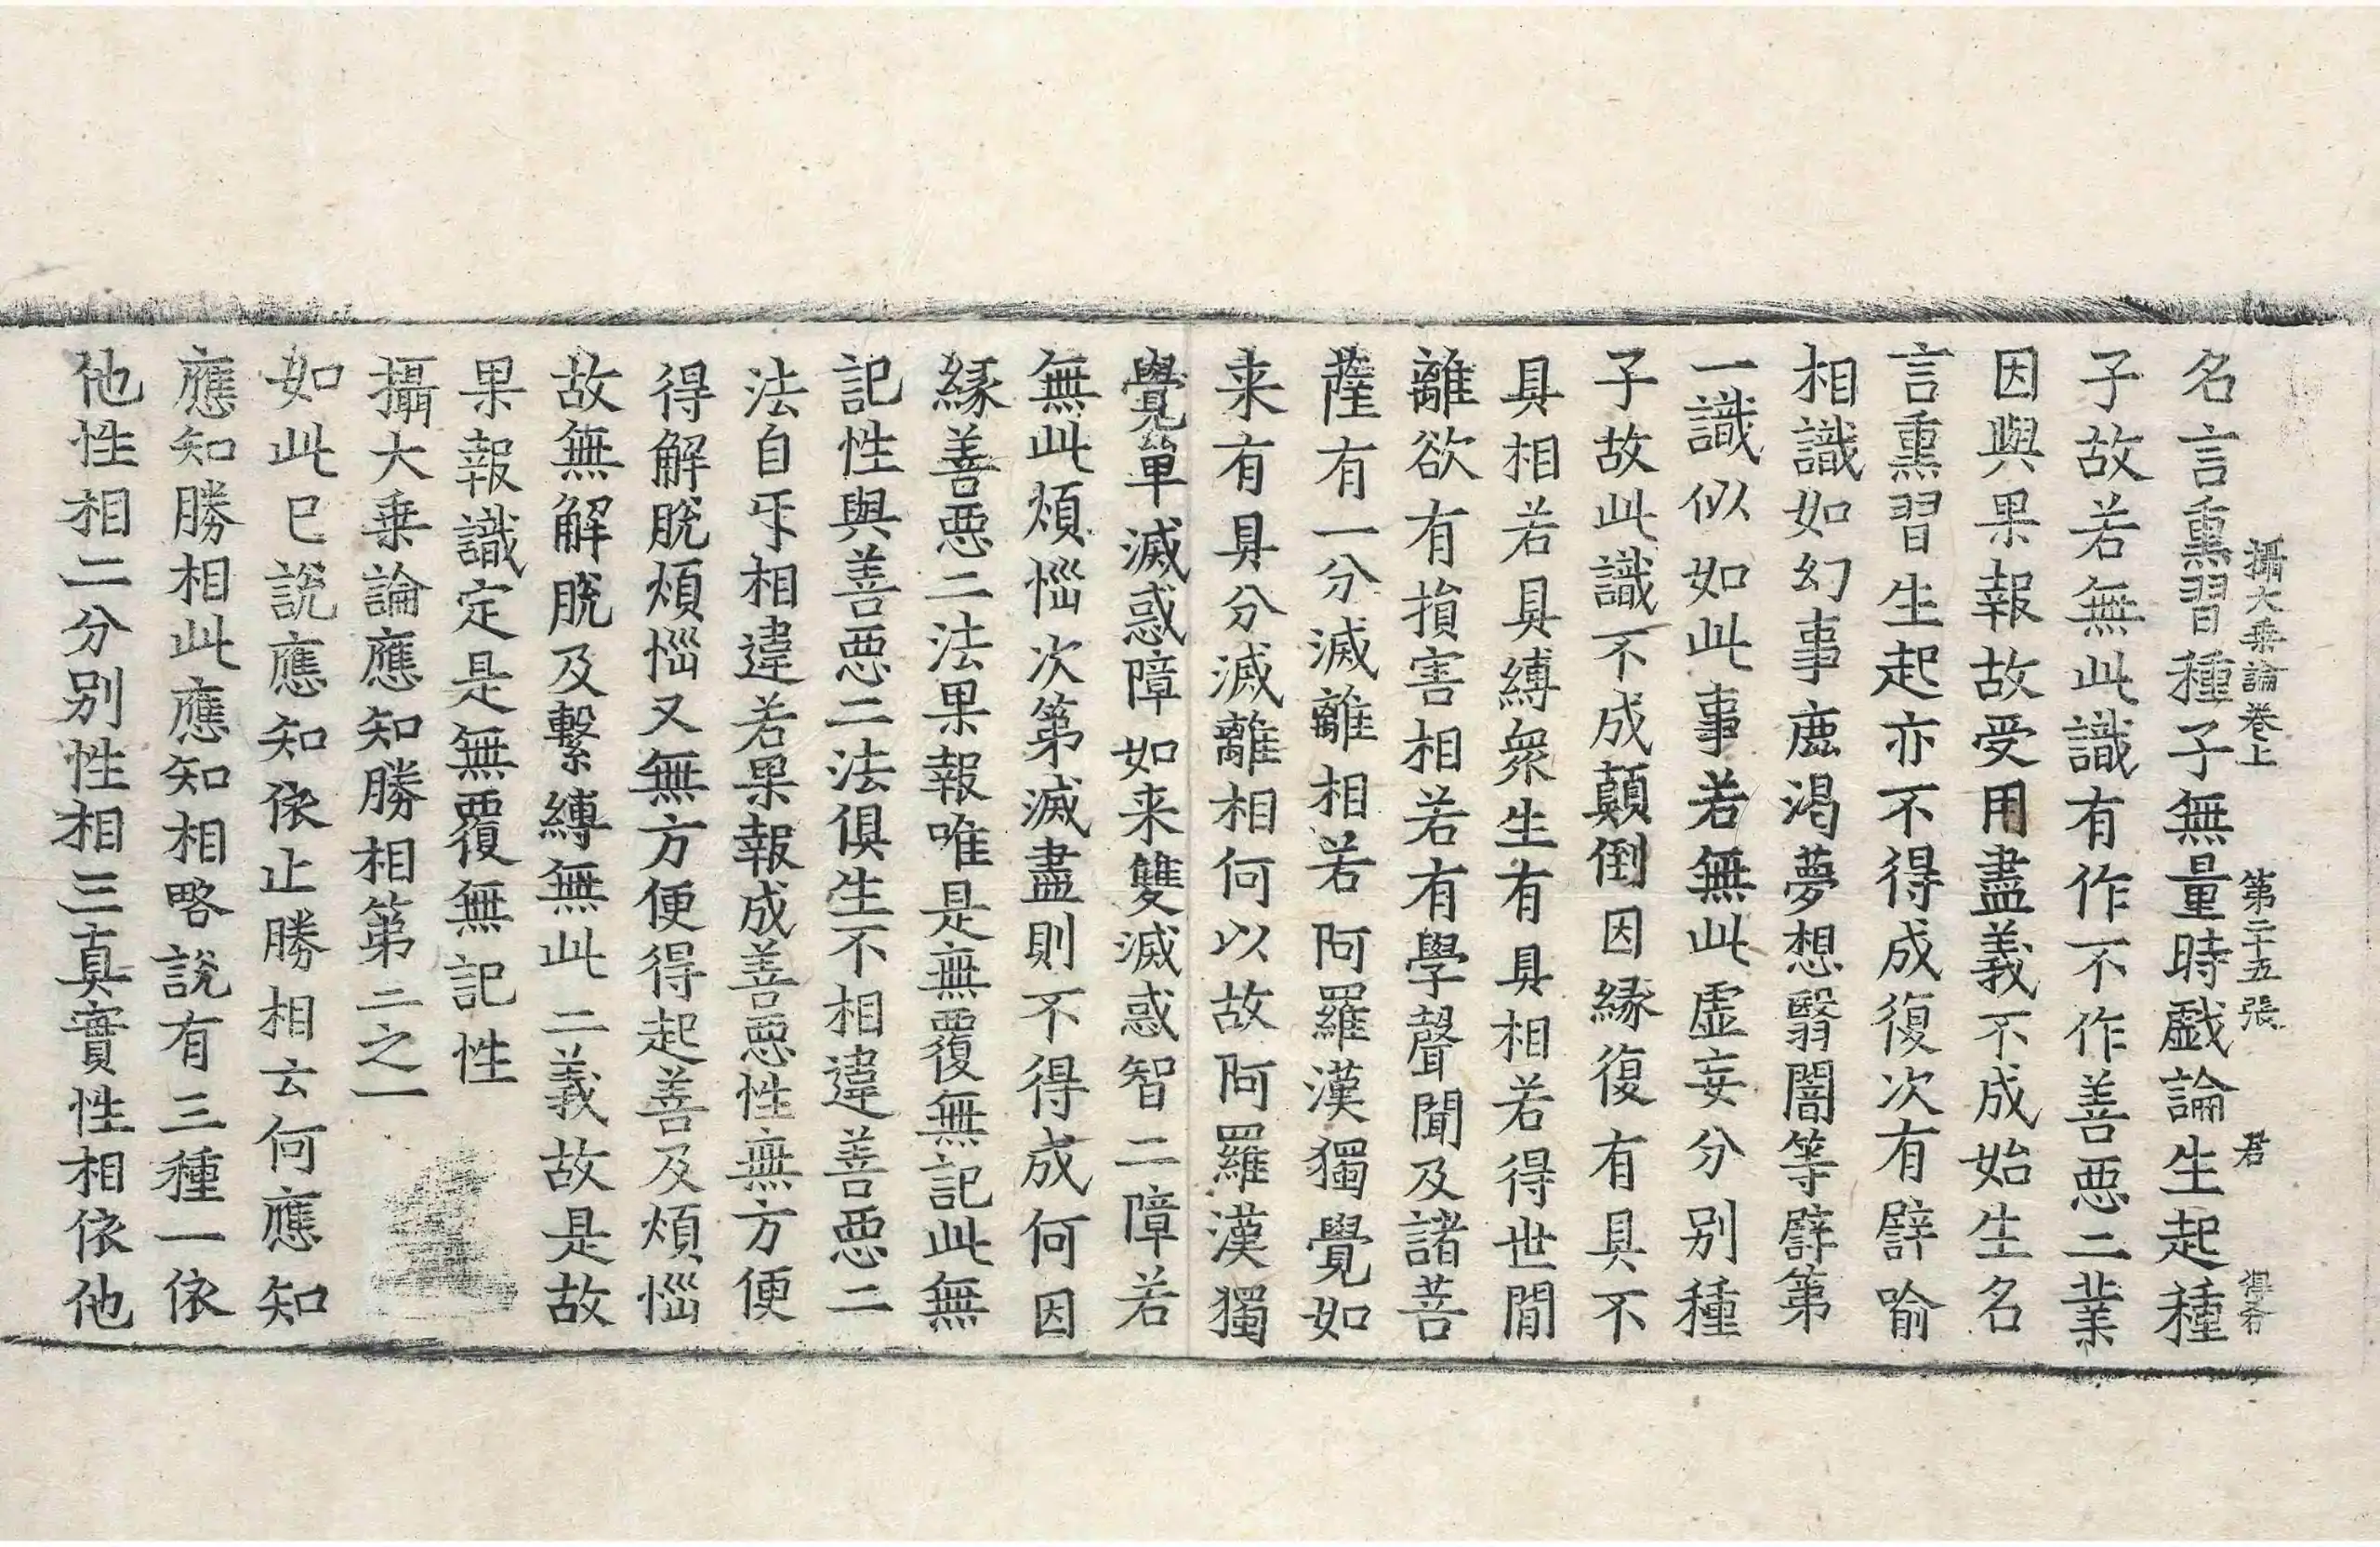 攝大乗論卷上　第二十五張　君　得奇
名言熏習種子無量時戲論生起種
子故若無此識有作不作善惡二業
因與果報故受用盡義不成始生名
言熏習生起亦不得成復次有譬喻
相識如幻事鹿渴夢想翳闇等譬第
一識似如此事若無此虛妄分别種
子故此識不成顛倒因緣復有具不
具相若具縛衆生有具相若得世間
離欲有損害相若有學聲聞及諸菩
薩有一分滅離相若阿羅漢獨覺如
来有具分滅離相何以故阿羅漢獨
覺單滅惑障如来雙滅惑智二障若
無此煩惱次第滅盡則不得成何因
緣善惡二法果報唯是無覆無記此無
記性與善惡二法俱生不相違善惡二
法自㸦相違若果報成善惡性無方便
得解脫煩惱又無方便得起善及煩惱
故無解脫及繫縛無此二義故是故
果報識定是無覆無記性
攝大乗論應知勝相第二之一
如此已說應知依止勝相云何應知
應知勝相此應知相略說有三種一依
他性相二分别性相三真實性相依他